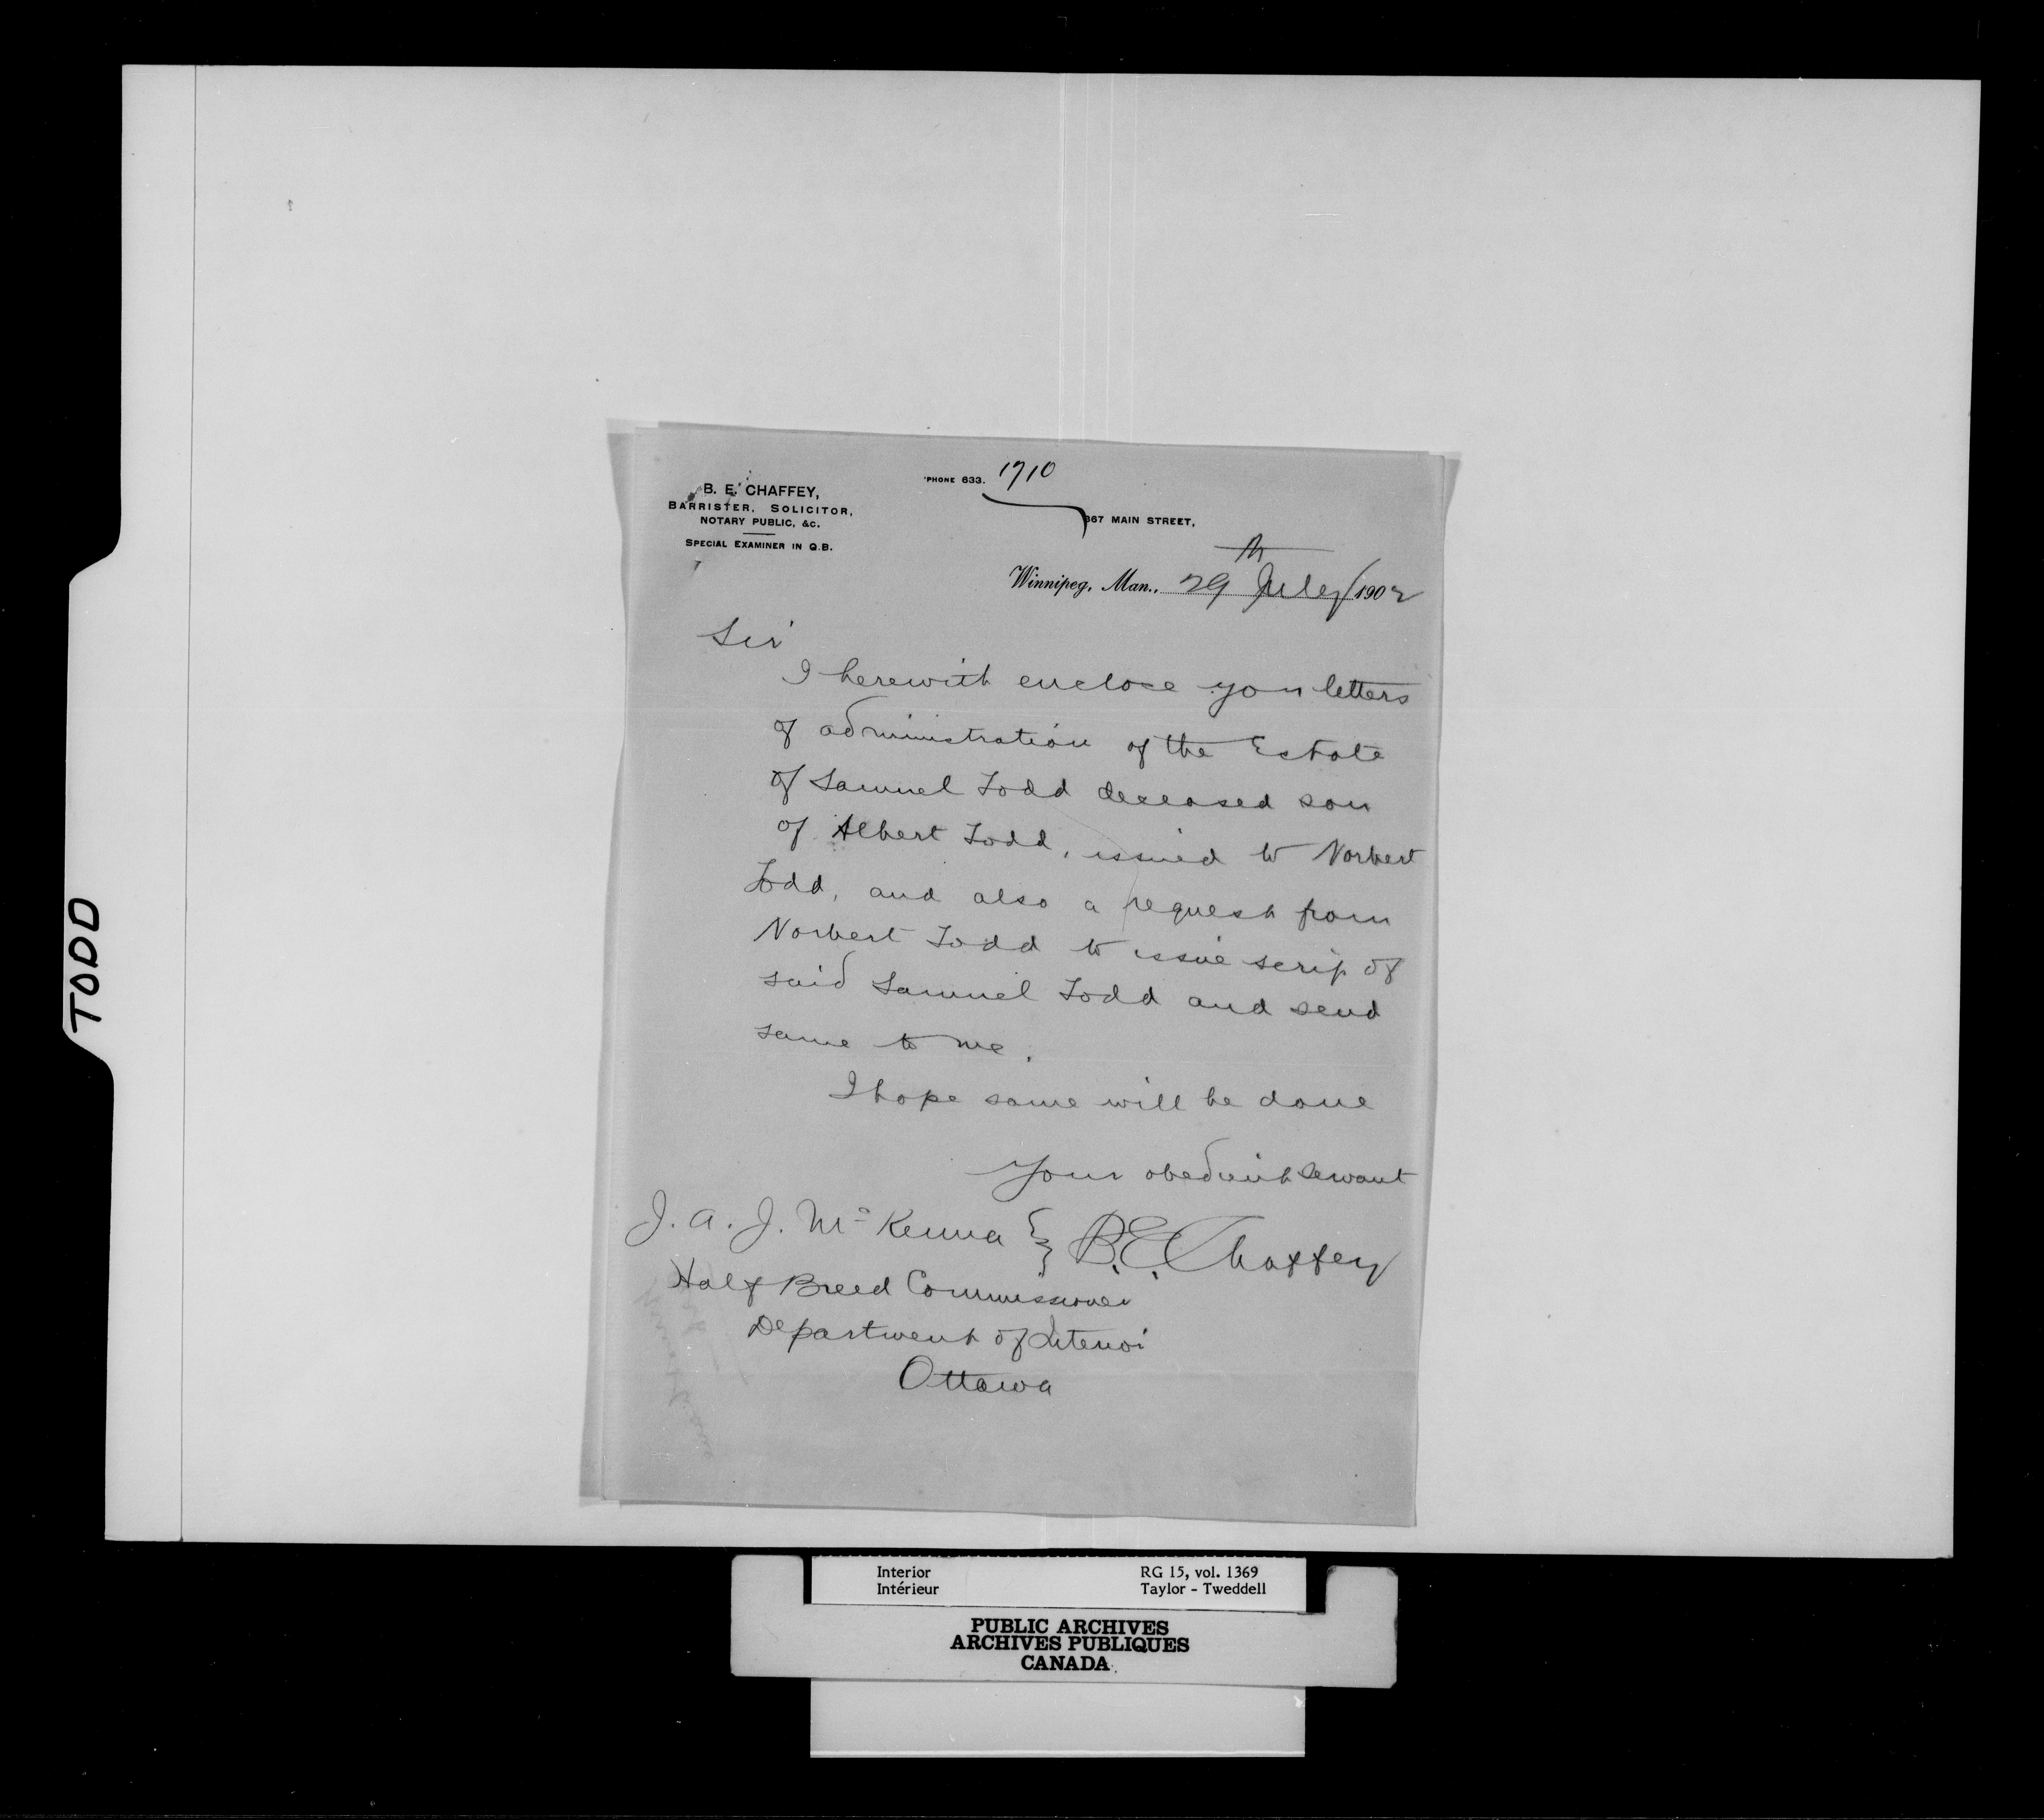 TODD
B. E. CHAFFEY,
BARRISTER, SOLICITOR,
NOTARY PUBLIC, &C.
SPECIAL EXAMINER IN Q.B.
'PHONE 633. 1710
367 MAIN STREET,
Winnipeg, Man., 29th July 1902
Sir
I herewith enclose you letters
of administration of the Estate
of Samuel Todd deceased son
of Albert Todd, issued to Norbert
Todd, and also a request from
Norbert Todd to issue scrip of
said Samuel Todd and send
same to me.
I hope same will be done
Your obedient servant
J. A. J. McKenna } B. E. Chaffey
Half Breed Commissioner
Department of Interior
Ottawa
Interior RG 15, vol. 1369
Intérieur Taylor - Tweddell
PUBLIC ARCHIVES
ARCHIVES PUBLIQUES
CANADA